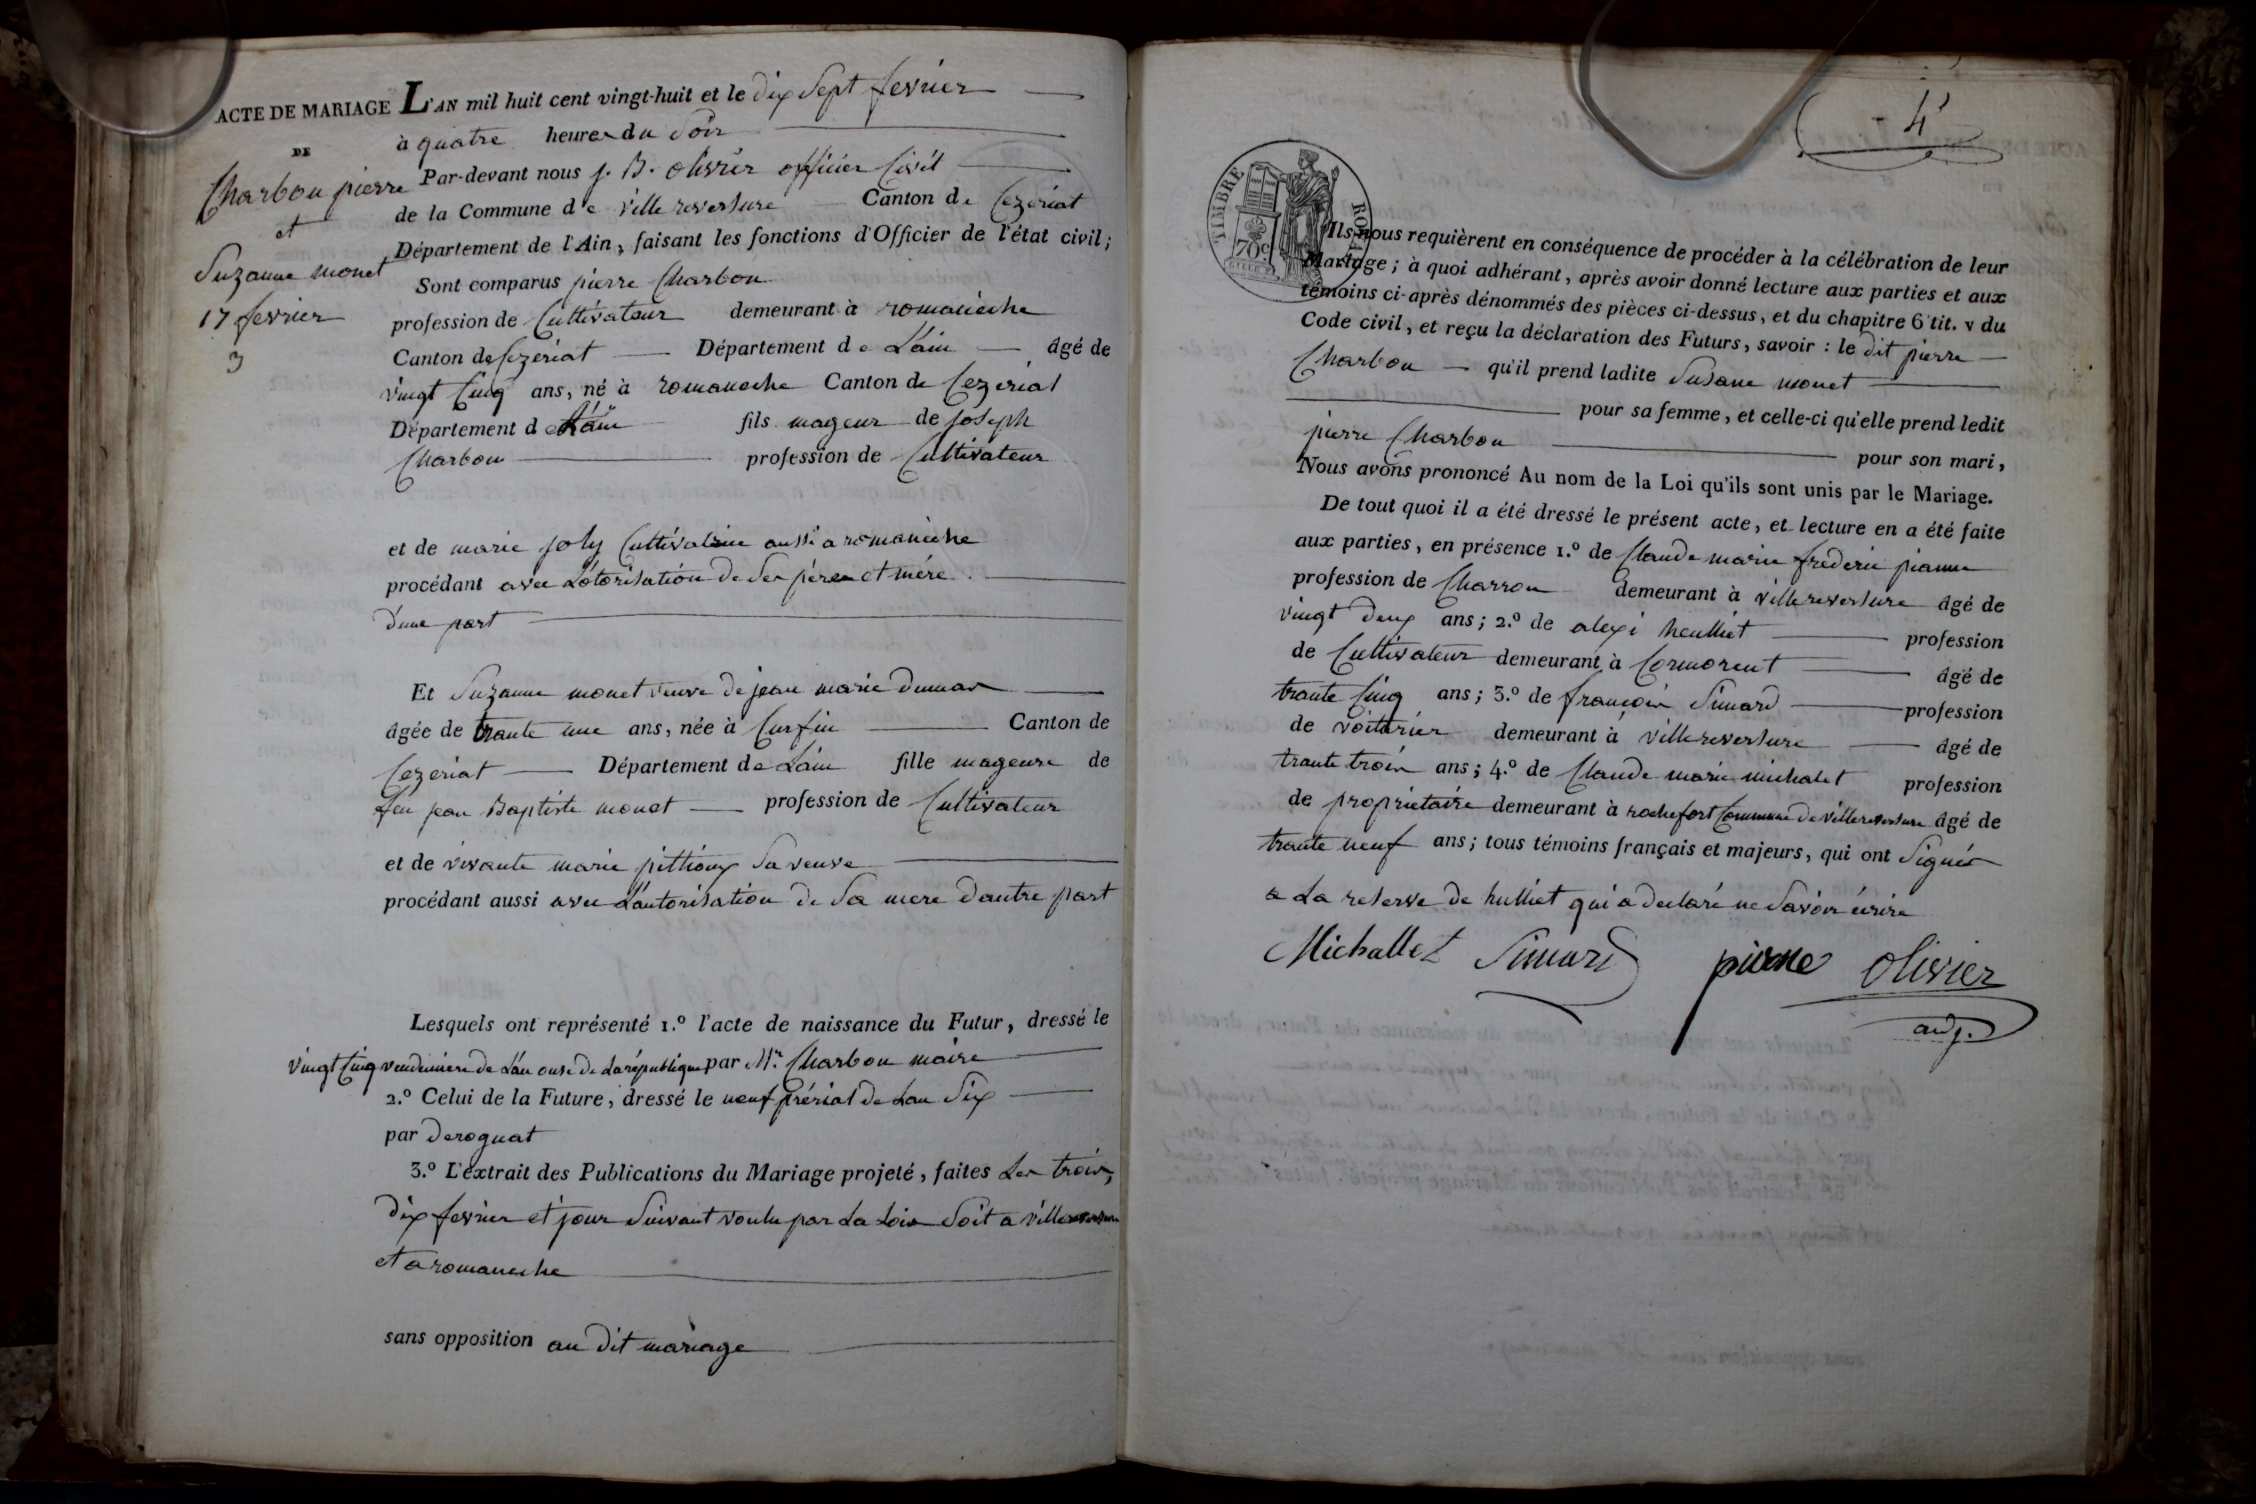 ACTE DE MARIAGE
DE
Charbon pierre
et
Suzanne monet
17 fevrier
3
L'AN mil huit cent vingt-huit et le dix Sept fevrier
à quatre heures du Soir
Par-devant nous J. B. olivier officier Civil
de la Commune de villereversure Canton de Cezeriat
Département de l'Ain, faisant les fonctions d'Officier de l'état civil;
Sont comparus pierre Charbon
profession de Cultivateur demeurant à romaneche
Canton de Cezeriat Département de L'ain âgé de
vingt Cinq ans, né à romaneche Canton de Cezeriat
Département de L'ain fils mageur de Joseph
Charbon profession de Cultivateur
et de marie joly Cultivatrice aussi a romaneche
procédant avec L'otorisation de Ses pères et mère
d'une part
Et Suzanne monet veuve de jean marie dumas
âgée de trante une ans, née à Curfin Canton de
Cezeriat Département de L'ain fille mageure de
feu jean Baptiste monet profession de Cultivateur
et de vivante marie pittioux Sa veuve
procédant aussi avec L'autorisation de Sa mere d'autre part
Lesquels ont représenté 1.º l'acte de naissance du Futur, dressé le
vingt Cinq vendemiere de L'an onse de La république par Mr. Charbon maire
2.º Celui de la Future, dressé le neuf prérial de Lan Six
par deroguat
3.º L'extrait des Publications du Mariage projeté, faites Les trois,
dix fevrier et jour Suivant voulu par La Loix Soit a villereversure
et a romaneche
sans opposition au dit mariage
- 4
TIMBRE ROYAL
70c
Ils nous requièrent en conséquence de procéder à la célébration de leur
Mariage; à quoi adhérant, après avoir donné lecture aux parties et aux
témoins ci-après dénommés des pièces ci-dessus, et du chapitre 6 tit. v du
Code civil, et reçu la déclaration des Futurs, savoir : le dit pierre
Charbon qu'il prend ladite Susane monet
pour sa femme, et celle-ci qu'elle prend ledit
pierre Charbon pour son mari,
Nous avons prononcé Au nom de la Loi qu'ils sont unis par le Mariage.
De tout quoi il a été dressé le présent acte, et lecture en a été faite
aux parties, en présence 1.º de Claude marie frederic
profession de Charron demeurant à villereversure âgé de
vingt deux ans; 2.º de alexi heulliet profession
de Cultivateur demeurant à Cormorent âgé de
trante Cinq ans; 3.º de françois Simard profession
de voiturier demeurant à villereversure âgé de
trante trois ans; 4.º de Claude marie michalet profession
de propriétaire demeurant à rochefort Commune de villereversure âgé de
trante neuf ans; tous témoins français et majeurs, qui ont Signés
a La reserve de hulliet qui a declaré ne Savoir écrire
Michallet Simard olivier
adj.